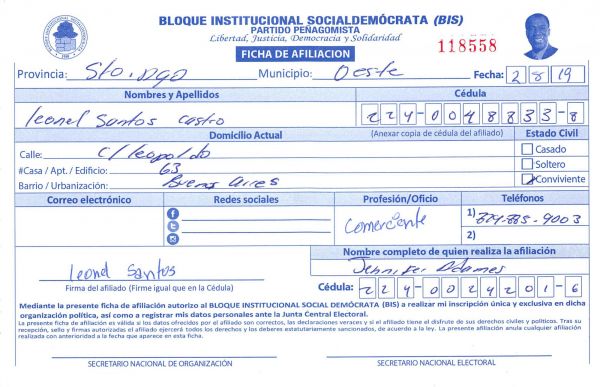 BLOQUE INSTITUCIONAL SOCIALDEMÓCRATA (BIS)
PARTIDO PEÑAGOMISTA
Libertad, Justicia, Democracia y Solidaridad
FICHA DE AFILIACION
118558
Provincia: Sto. Dgo Municipio: Oeste Fecha: 2 8 19
Nombres y Apellidos Cédula
Leonel Santos Castro 224-0048833-8
Domicilio Actual (Anexar copia de cédula del afiliado) Estado Civil
Calle: C/ Leopoldo Casado
#Casa / Apt. / Edificio: 63 Soltero
Barrio / Urbanización: Buenos Aires Conviviente
Correo electrónico Redes sociales Profesión/Oficio Teléfonos
Comerciente 1) 829-885-9003
2)
Nombre completo de quien realiza la afiliación
Leonel Santos Jennifer Adames
Firma del afiliado (Firme igual que en la Cédula) Cédula: 224-0024201-6
Mediante la presente ficha de afiliación autorizo al BLOQUE INSTITUCIONAL SOCIAL DEMÓCRATA (BIS) a realizar mi inscripción única y exclusiva en dicha
organización política, así como a registrar mis datos personales ante la Junta Central Electoral.
La presente ficha de afiliación es válida si los datos ofrecidos por el afiliado son correctos, las declaraciones veraces y si el afiliado tiene el disfrute de sus derechos civiles y políticos. Tras su
recepción, sello y firmas autorizadas el afiliado ejercerá todos los derechos y los deberes estatutariamente sancionados, de acuerdo a la ley. La presente afiliación anula cualquier afiliación
realizada con anterioridad a la fecha que aparece en esta ficha.
SECRETARIO NACIONAL DE ORGANIZACIÓN SECRETARIO NACIONAL ELECTORAL